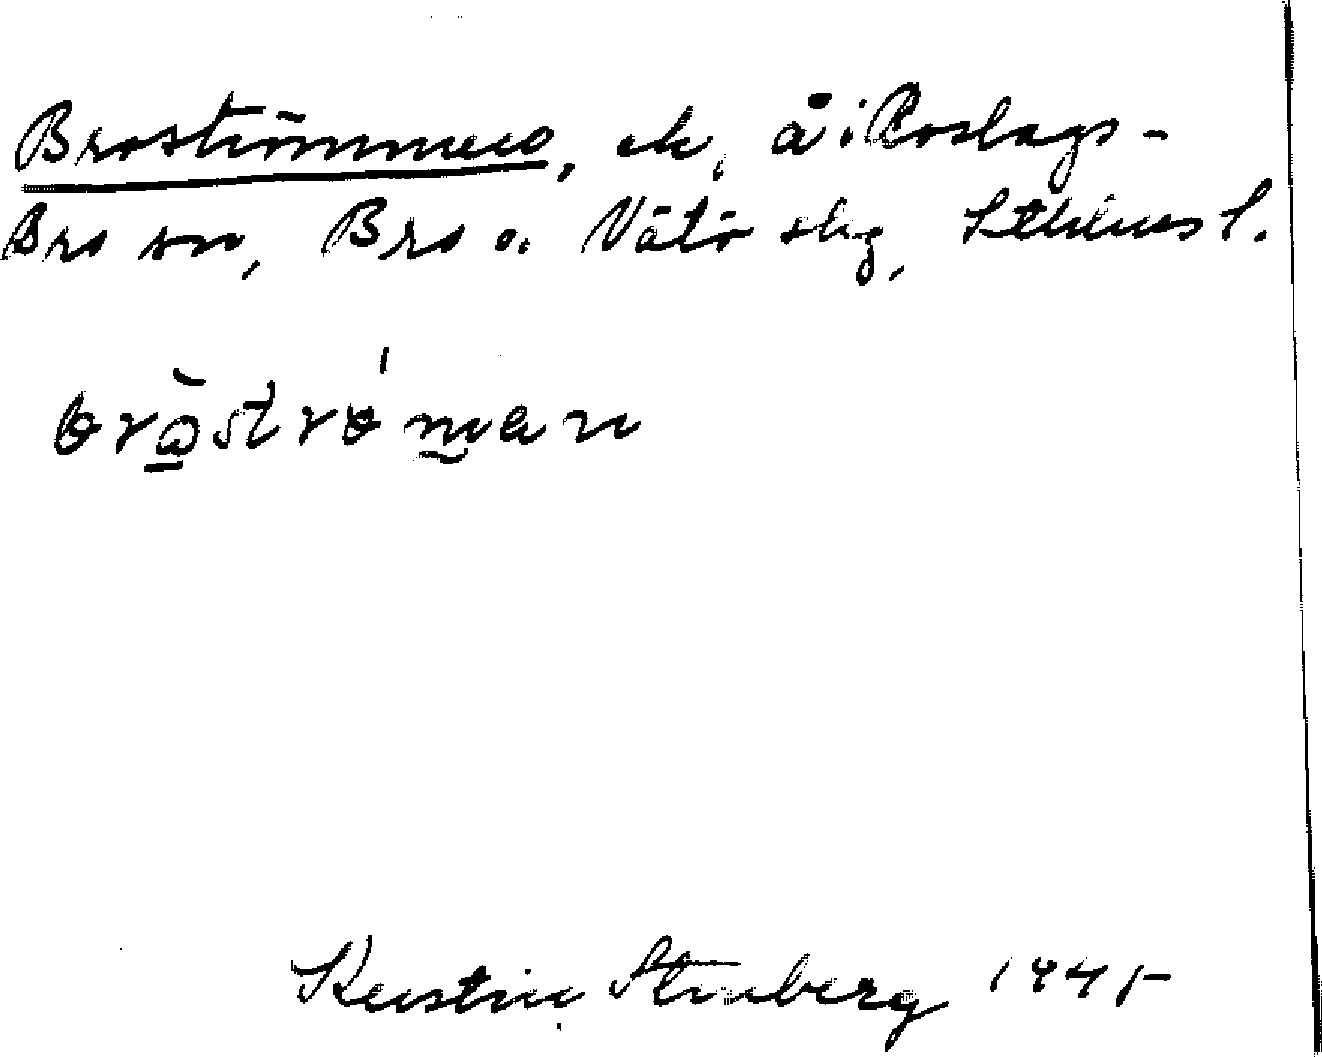 Broströmmen, ek, å i Roslags-
Bro sn, Bro o. Vätö skg, Sthlms l.
Kerstin Stenberg 1945